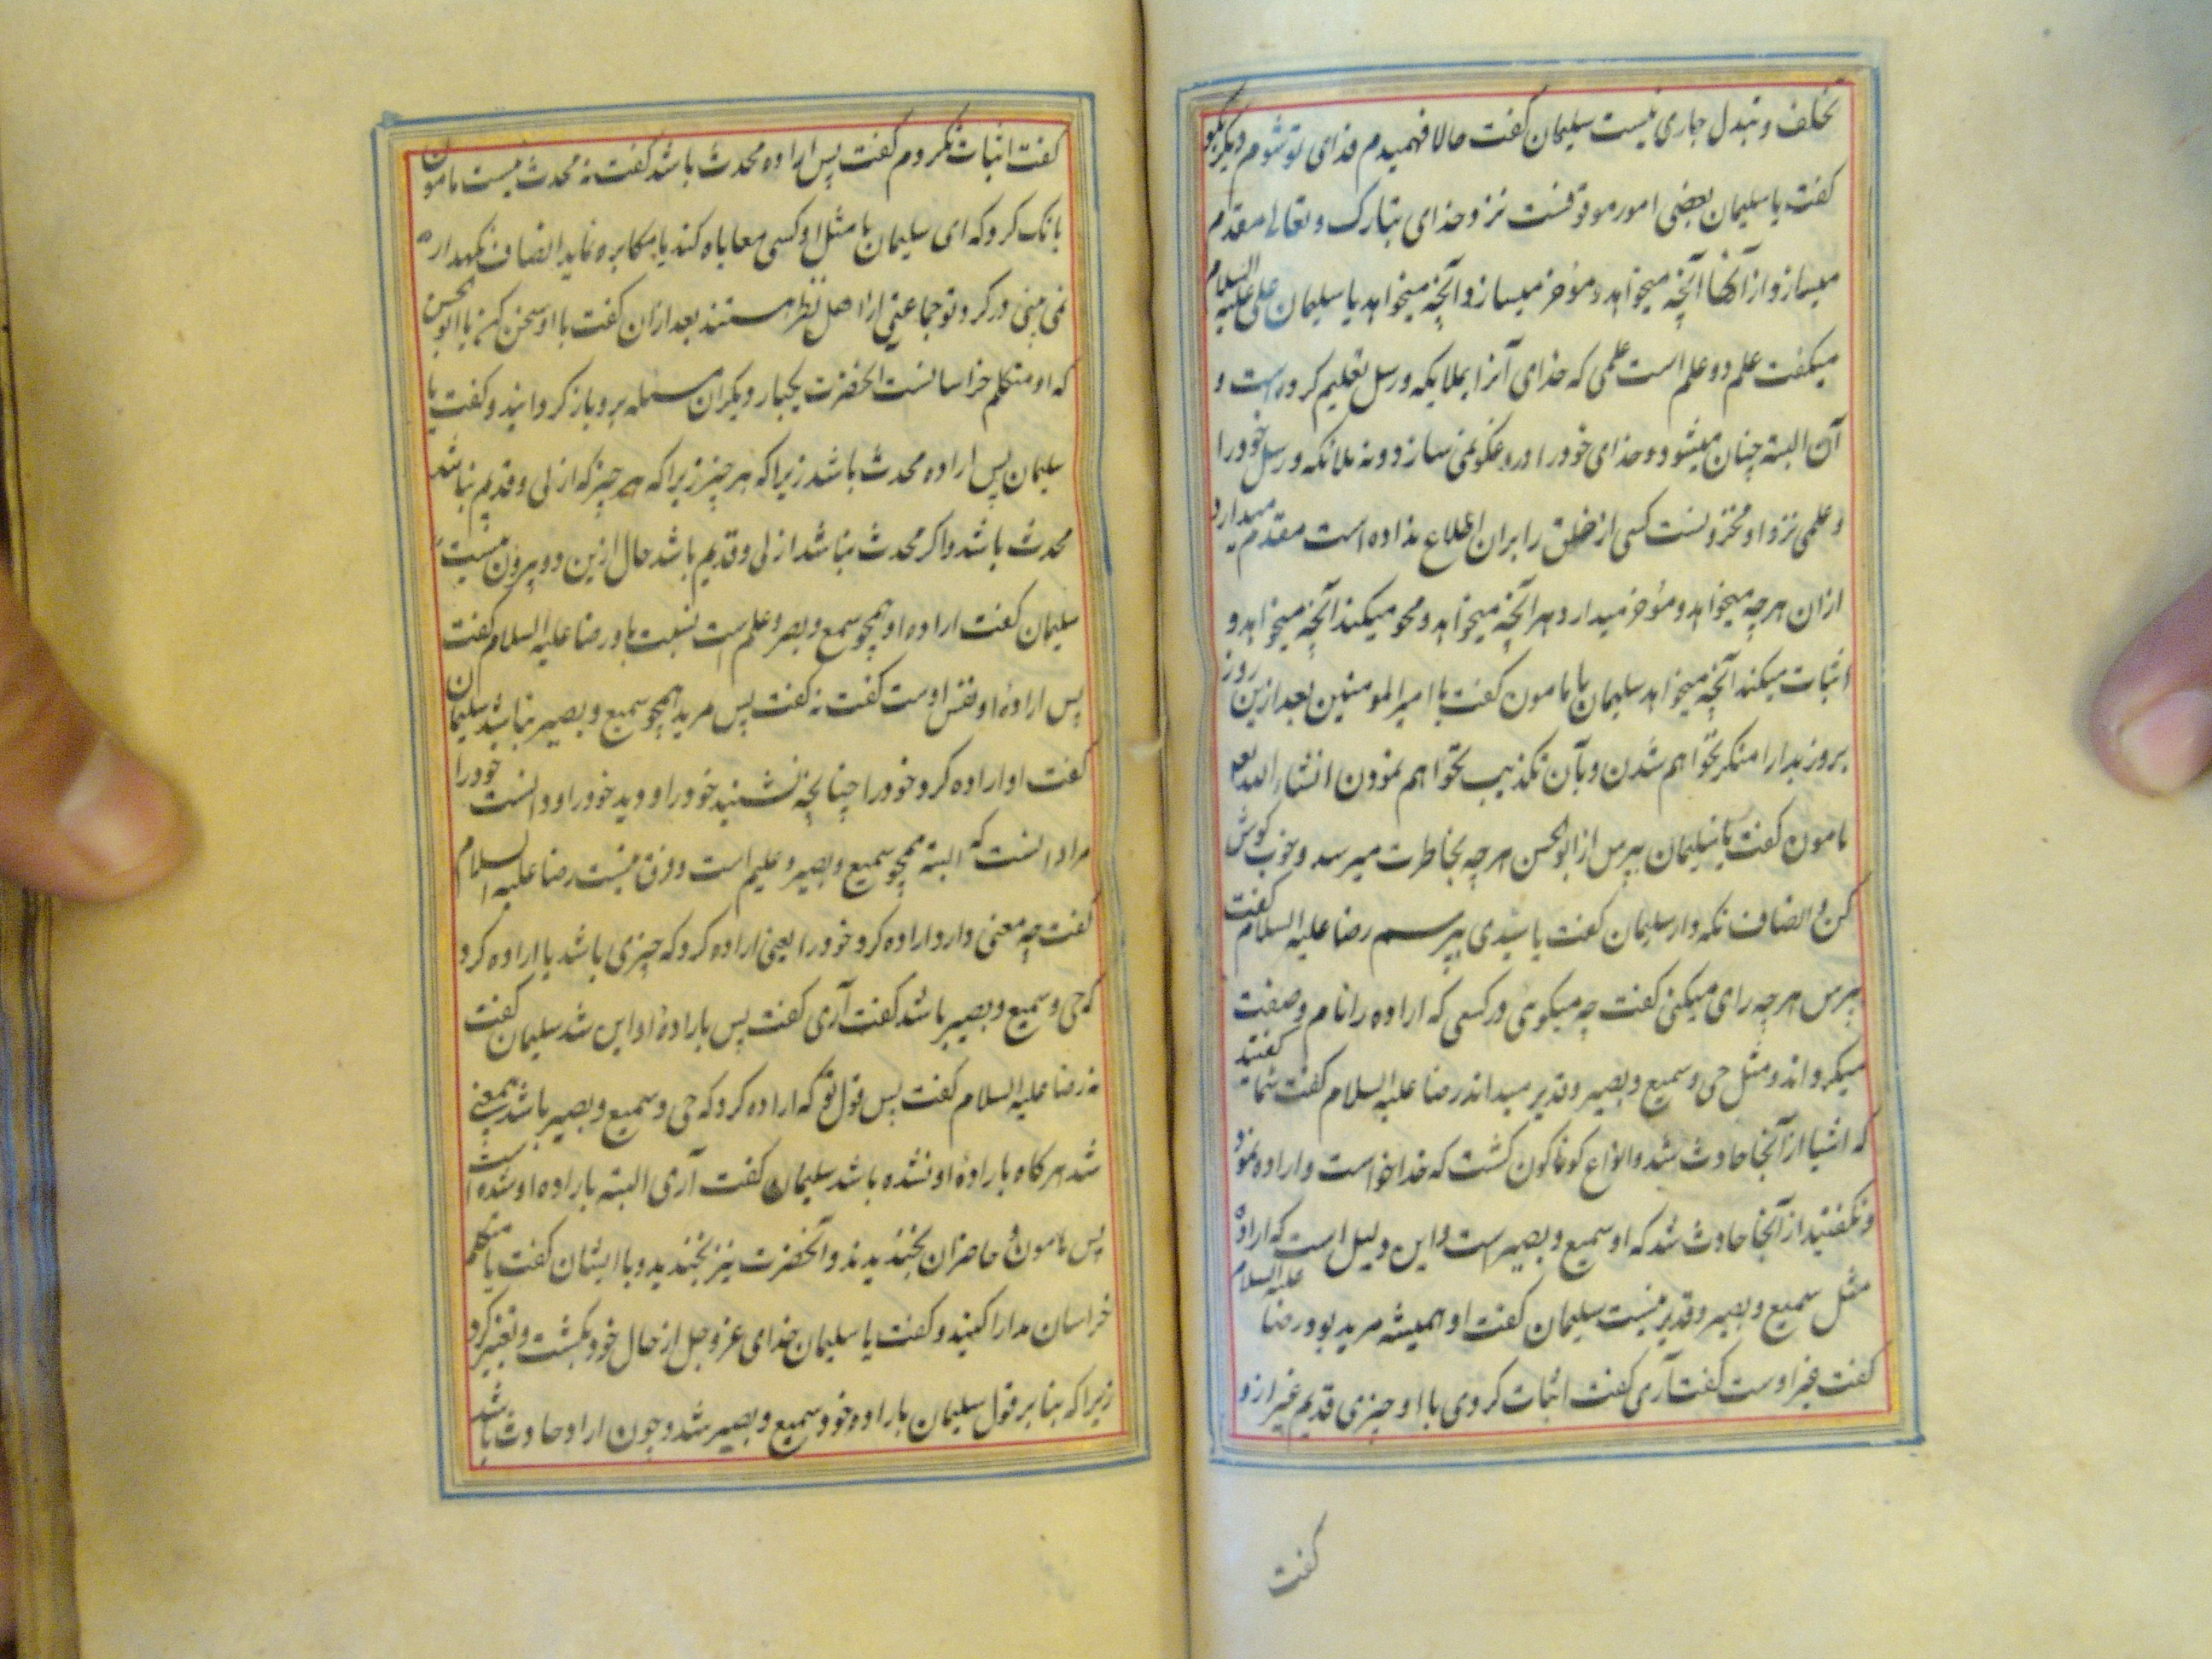 تخلف و تبدل جاری نیست سلیمان گفت حالا فهمیدم فدای تو شوم دیگر بگو
گفت یا سلیمان بعضی امور موقوفست نزد خدای تبارک و تعالی مقدم
میسازد از آنها آنچه میخواهد و مؤخر میسازد آنچه میخواهد یا سلیمان علی علیه السلام
میگفت علم دو علم است علمی که خدای آنرا بملایکه و رسل تعلیم کرده است و
آن البته چنان میشود و خدای خود را دروغگو نمی سازد و نه ملائکه و رسل خود را
و علمی نزد او مخزونست کسی از خلق را بران اطلاع نداده است مقدم میدارد
ازان هرچه میخواهد و مؤخر میدارد هرآنچه میخواهد و محو میکند آنچه میخواهد و
اثبات میکند آنچه میخواهد سلیمان با مامون گفت یا امیر المومنین بعد ازین روز
بروز بدا را منکر نخواهم شدن و بآن تکذیب نخواهم نمودن انشاء الله تعه
مامون گفت یا سلیمان بپرس از ابوالحسن هرچه بخاطرت میرسد و خوب گوش
کن و انصاف نگه دار سلیمان گفت یا سیدی بپرسم رضا علیه السلام گفت
بپرس هرچه رای میکنی گفت چه میگوئی در کسی که اراده را نام و صفت
میگرداند و مثل حی و سمیع و بصیر و قدیر میداند رضا علیه السلام گفت شما گفتید
که اشیا از آنجا حادث شد و انواع گوناگون گشت که خدا خواست و اراده نمود
و نگفتید از آنجا حادث شد که او سمیع و بصیر است و این دلیل است که اراده
مثل سمیع و بصیر و قدیر نیست سلیمان گفت او همیشه مرید بود رضا علیه السلام
گفت غیر اوست گفت آری گفت اثبات کردی با او چیزی قدیم غیر ازو
گفت
گفت اثبات نکردم گفت پس اراده محدث باشد گفت نه محدث نیست مامون
بانک کرد که ای سلیمان با مثل او کسی معایاه کند یا مکابره نماید انصاف نگهدار
نمی بینی در گرد تو جماعتی از اهل نظر هستند بعد ازان گفت با او سخن کن یا ابوالحسن
که او متکلم خراسانست انحضرت یکبار دیگر ان مسئله برو باز گردانید و گفت یا
سلیمان پس اراده محدث باشد زیرا که هر چیز زیرا که هر چیز که ازلی و قدیم نباشد
محدث باشد و اگر محدث نباشد ازلی و قدیم باشد حال ازین دو بیرون نیست
سلیمان گفت اراده او همچو سمع و بصر و علم است نسبت باو رضا علیه السلام گفت
پس ارادهٔ او نفس اوست گفت نه گفت پس مرید همچو سمیع و بصیر نباشد سلیمان
گفت او اراده کرد خود را چنانچه شنید خود را و دید خود را و دانست خود را
مراد انست که البته همچو سمیع و بصیر و علیم است و فرق نیست رضا علیه السلام
گفت چه معنی دارد اراده کرد خود را یعنی اراده کرد که چیزی باشد یا اراده کرد
که حی و سمیع و بصیر باشد گفت آری گفت پس بارادهٔ او این شد سلیمان گفت
نه رضا علیه السلام گفت پس قول تو که اراده کرد که حی و سمیع و بصیر باشد بیمعنی
شد هرگاه بارادهٔ او نشده باشد سلیمان گفت آری البته باراده او شده است
پس مامون و حاضران بخندیدند و آنحضرت نیز بخندید و با ایشان گفت با متکلم
خراسان مدارا کنید و گفت یا سلیمان خدای عز و جل از حال خود بگشت و تغیر کرد
زیرا که بنا بر قول سلیمان باراده خود سمیع و بصیر شد و چون اراد حادث باشد